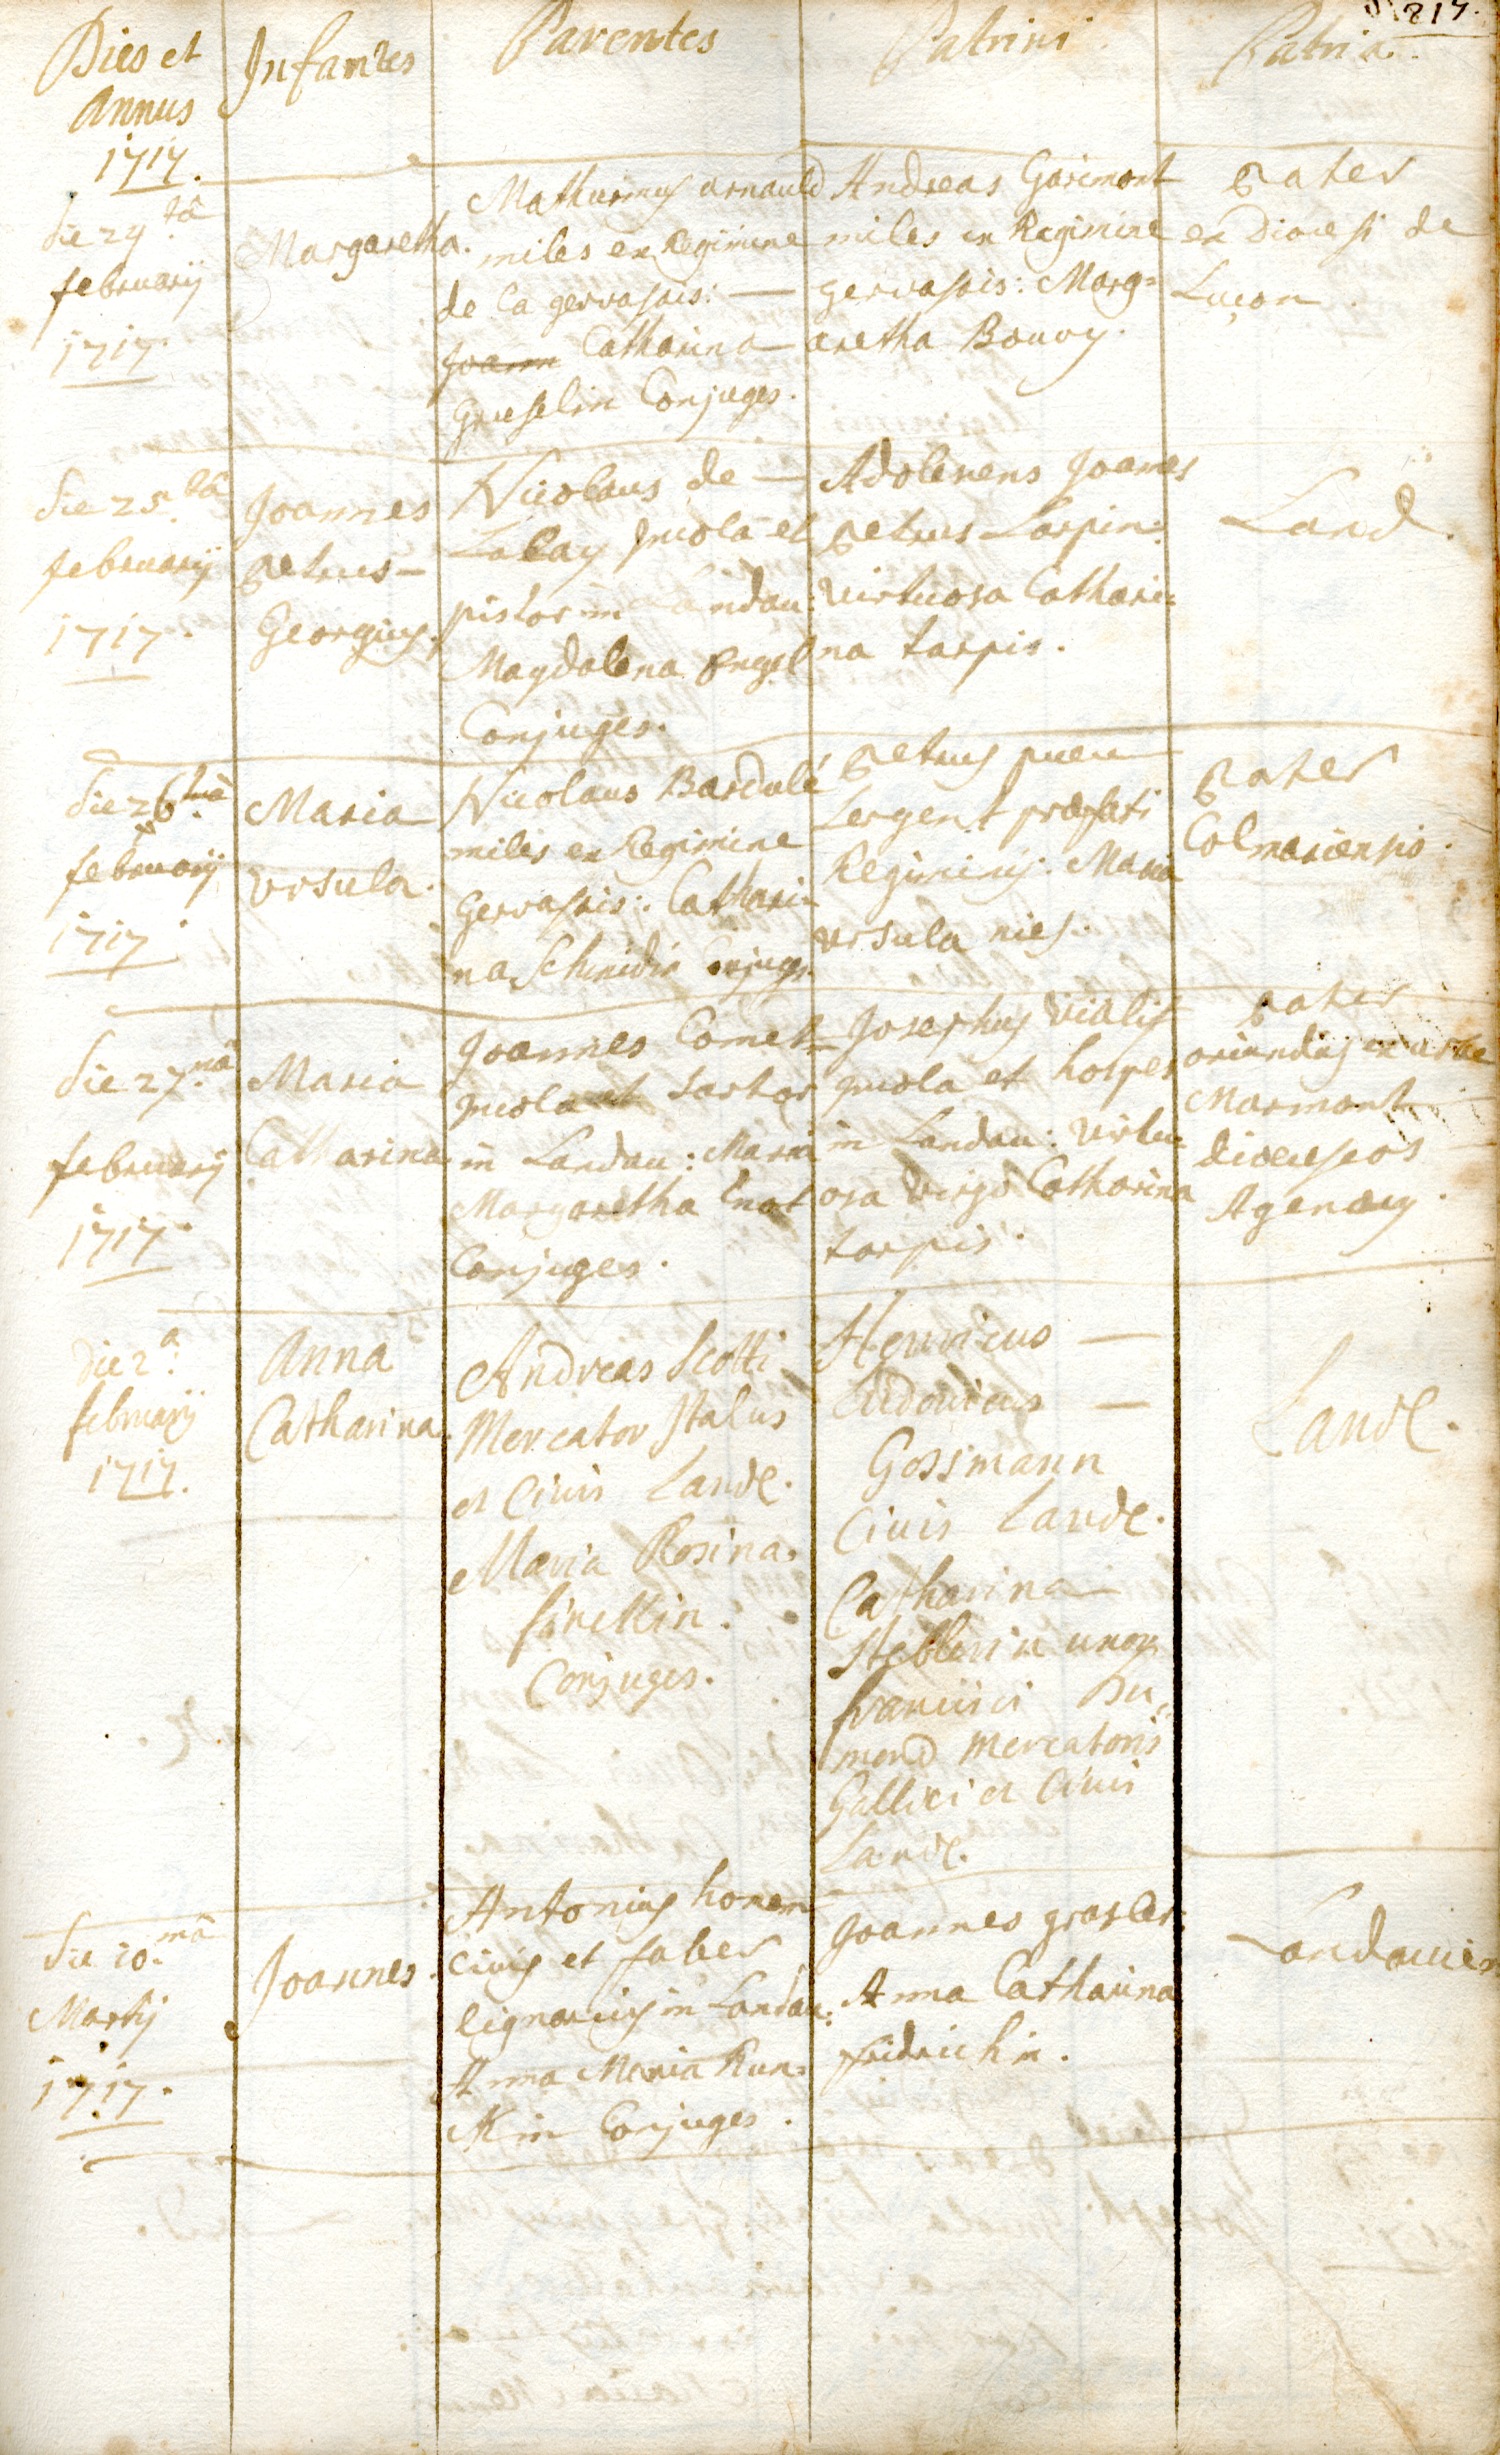 217.
Dies et
Annus
1717.
Infantes
Parentes
Patrini
Patria.
die 24.tâ
februarij
1717.
Margaretha.
Mathurinus arnauld
miles ex Regimine
de la gervasais: —
Joann Catharina
Grueselin Conjuges.
Andreas Garimont
miles ex Regimine
gervasais: Marg=
aretha Bouvy.
pater
ex Diocesi de
Luçon.
die 25.tâ
februarij
1717.
Joannes
petrus —
Georgius.
Nicolaus de —
Lalay incola et
pistor in Landau:
Magdalena Engel
Conjuges.
Adolescens Joannes
petrus Larpin:
virtuosa Cathari=
na tarpis.
Land.
die 26.tâ
februarij
1717.
Maria
ursula.
Nicolaus Bardulé
miles ex Regimine
Gervasais: Cathari=
na Schmidin Conjuges.
petrus
sergent præfati
Regiminis: Maria
ursula nies.
pater
Colmariensis.
die 27.mâ
februarij
1717.
Maria
Catharina
Joannes Comet
incola et sartor
in Landau: Maria
Margaretha
Conjuges.
Josephus vialis
incola et hospes
in Landau: virtu=
osa virgo Catharina
tarpis.
pater
oriundus ex urbe
Marmont
dioeceseos
Agenensis.
Die 2.a
februarij
1717.
Anna
Catharina.
Andreas Scotti
Mercator Italus
et Civis Landę.
Maria Rosina
finettin.
Conjuges.
Henricus —
Ludovicus —
Gossmann
Civis Landę.
Catharina
Steblerin uxor
francisci Du=
mond Mercatoris
Gallici et Civis
Landę.
Landę.
die 10.mâ
Martij
1717.
Joannes.
Antonius
civis et faber
lignarius in Landau:
Anna Maria Run=
kin Conjuges.
Joannes grasler
Anna Catharina
fridrichin.
Landavien